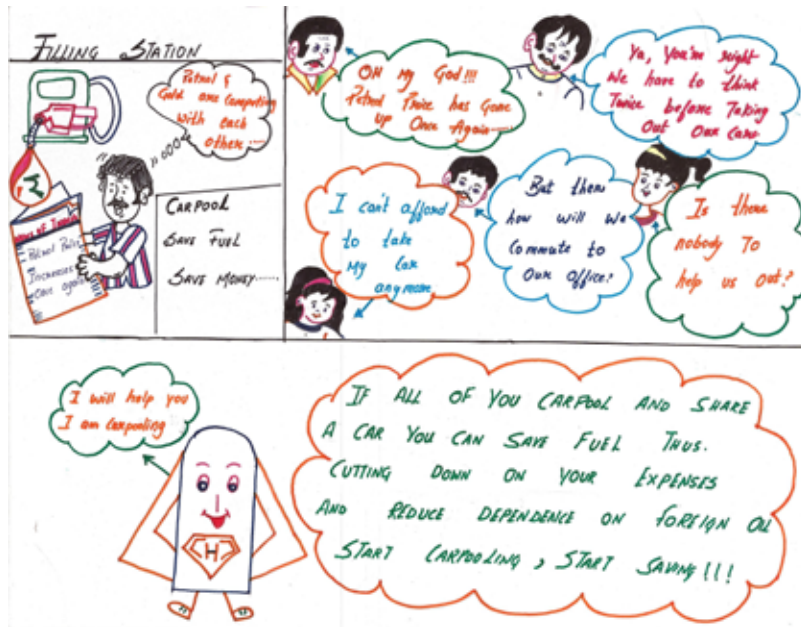 FILLING STATION
Petrol &
Gold are Competing
with each
other.....
News of Times
Petrol Price
Increases
Once again
CARPOOL
SAVE FUEL
SAVE MONEY......
OH My God!!!
Petrol Price has Gone
up Once Again......
Ya, You're right
We have to think
Twice before Taking
Out Our Cars
I can't afford
to take
My Car
anymore
But then
how will we
Commute to
Our Office?
Is there
nobody To
help us out?
I will help you
I am Carpooling
H
IF ALL OF YOU CARPOOL AND SHARE
A CAR YOU CAN SAVE FUEL THUS.
CUTTING DOWN ON YOUR EXPENSES
AND REDUCE DEPENDENCE ON FOREIGN OIL
START CARPOOLING, START SAVING!!!